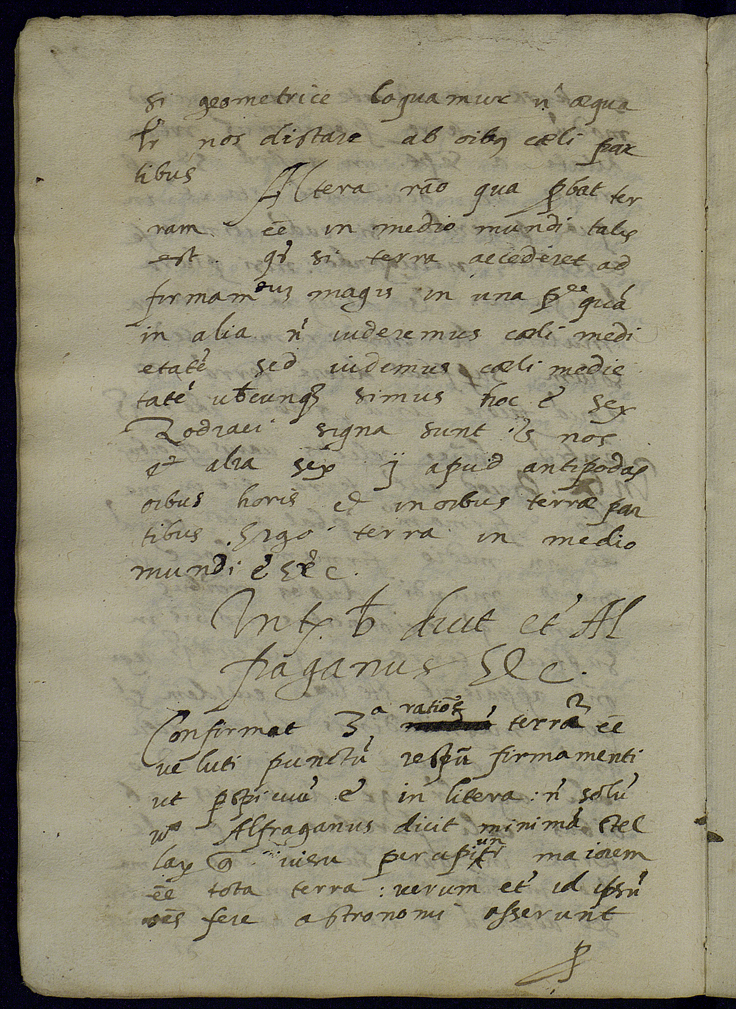 si geometrice loquamur ñ æqua
lr̃ nos distare ab oib9 cæli par
tibus Altera rão qua ꝓbat ter
ram ēē in medio mundi talis
est. qr̃ si terra accederet ad
firmam magis in una ꝑ quã
in alia ñ uideremus cæli medi
etatẽ sed uidemus cæli medie
tatẽ ubcunqȝ simus hoc ẽ sex
Zodiaci signa sunt nos
et alia sex apud antipodas
oibus horis et in oibus terræ par
tibus. Ergo terra in medio
mundi ẽ &c.
dicit et Al
fraganus &c.
Confirmat 3ª rationẽ terrã ēē
ueluti punctũ respũ firmamenti
ut ꝑspicuũ ẽ in litera: ñ solũ
Alfraganus dicit minimã stel
uisu percipitur maiorem
ēē tota terra: uerum et id ipsũ
oẽs fere astronomi asserunt